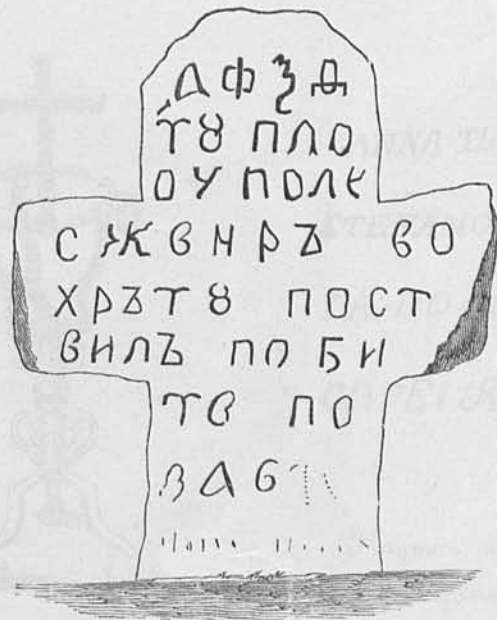 ҂АФѮД
ТȢ ПЛО
ОУ ПОЛК
С ЖВНРЪ ВО
ХРЪТȢ ПОСТ
ВИЛЪ ПО БИ
ТВ ПО
ЗАБ